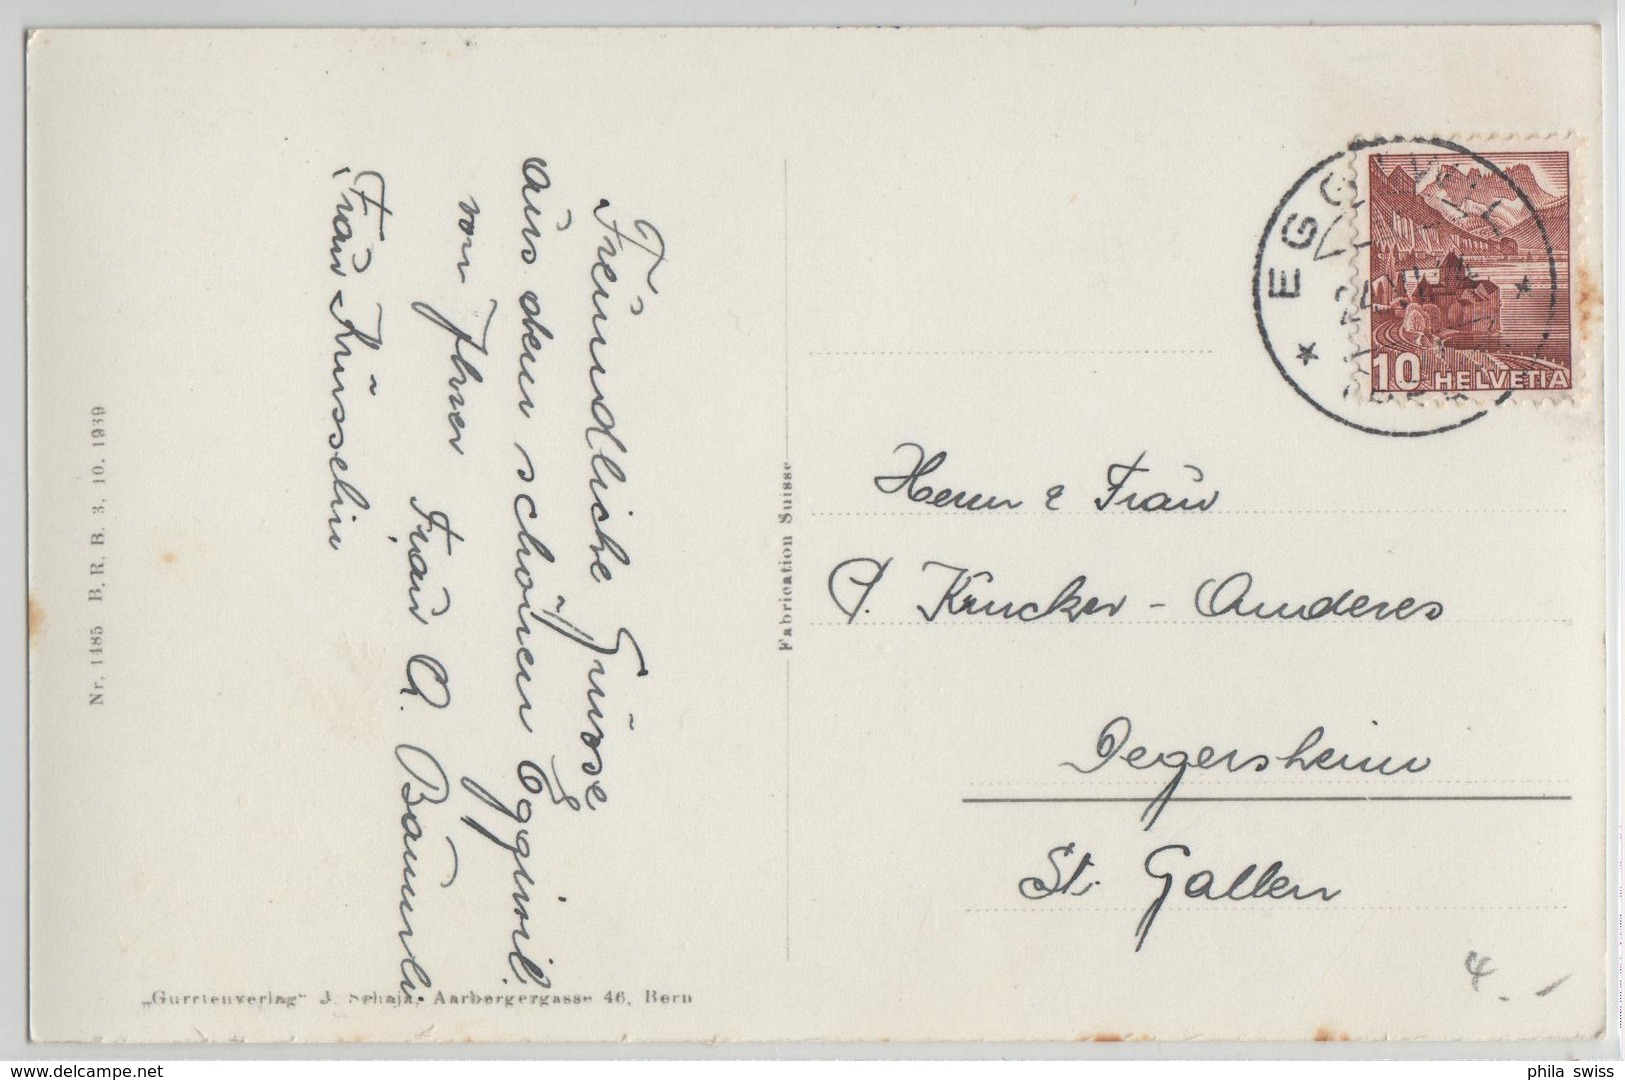 Freundliche Grüsse
aus dem schönen Eggiwil.
von Ihrer Frau A. Bäumli
Frau Rüsselin
Nr. 1485 B. R. B. 3. 10. 1939
„Gurrtenverlag“ J. Schaja, Aarbergergasse 46, Bern
Fabrication Suisse
EGGIWIL
10 HELVETIA
Herrn & Frau
Krucker - Anderes
Degersheim
St. Gallen
4.-
phila swiss
delcampe.net